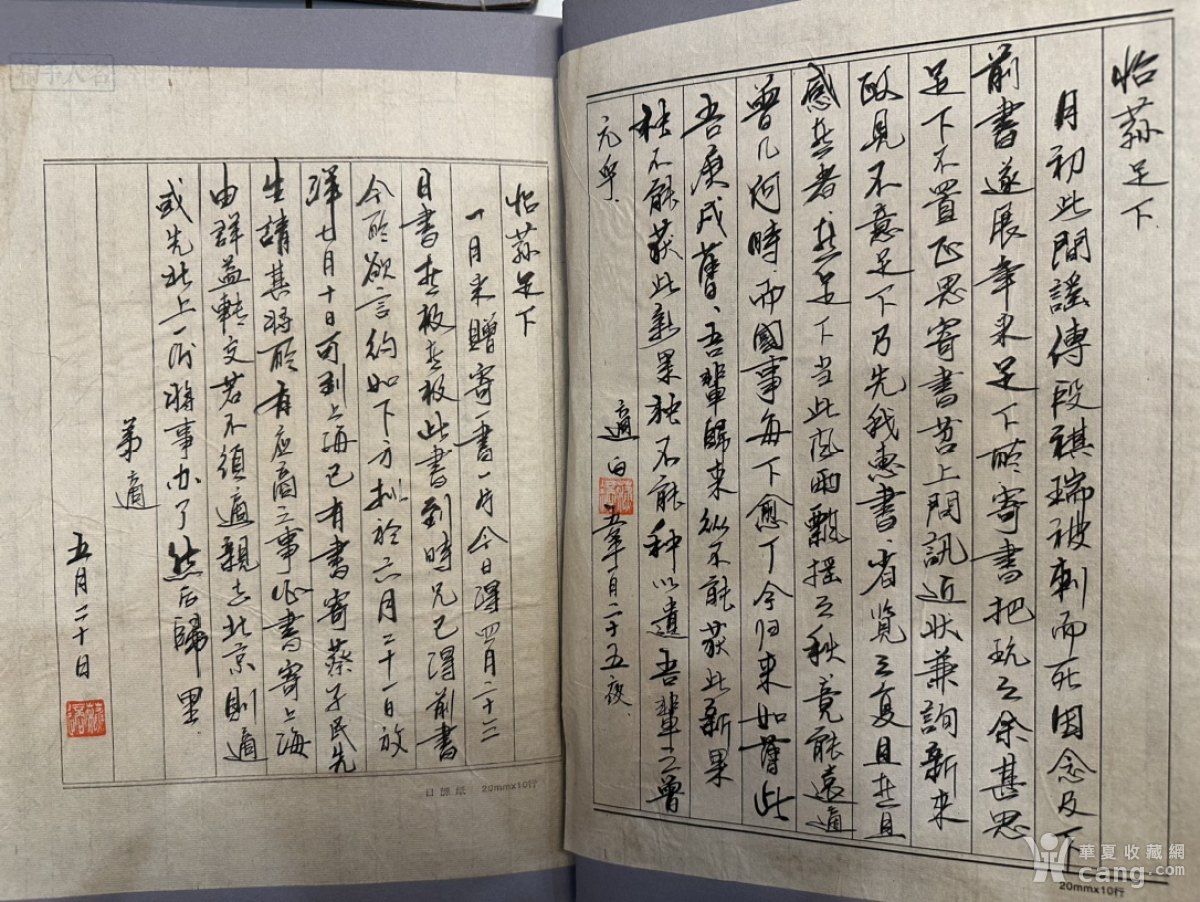 怡荪足下
月初此間謠傳段祺瑞被刺而死因念及下
前書遂展年来足下所寄書把玩之余甚思
足下不置正思寄書苕上問訊近状兼詢新来
政見不意足下乃先我惠書、省览三复且悲且
感悲者、悲足下当此風雨飄摇之秋竟能遠適
曾几何時、而國事每下愈下今归来如此
吾庚戌舊、吾輩歸来纵不能获此新果
秧不能获此新果独不能种以遺吾輩之曾
元乎、
適白 五年一月二十五夜、
20mm×10行
怡荪足下
一月来贈寄一書一片今日得四月二十二
日書悲极悲极此書到時兄已得前書
今所欲言約如下方拟於六月二十一日放
洋七月十日可到上海已有書寄蔡孑民先
生請其将所有应商之事作書寄上海
由群益轉交若不須適親去北京則適
或先北上一行将事办了然后歸里
弟適
五月二十日
20mm×10行
華夏收藏網
cang.com